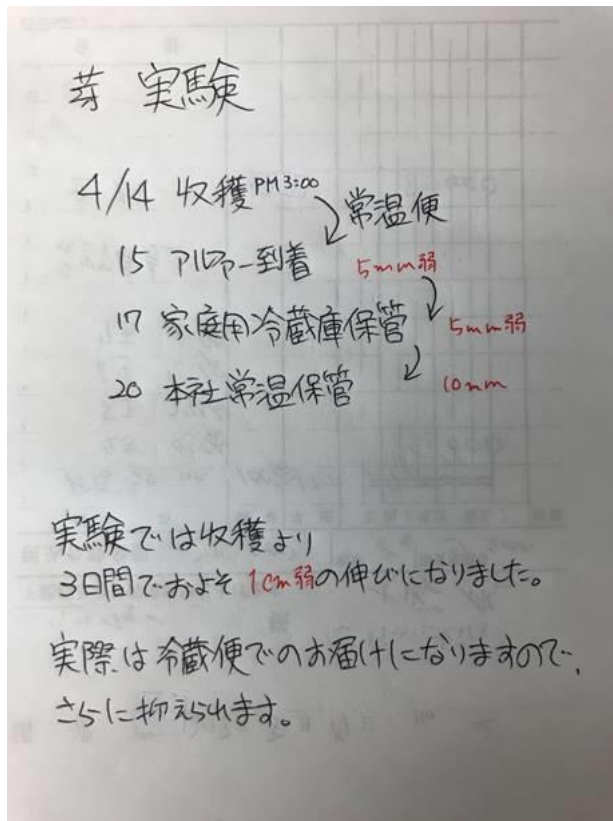 芽 実験
4/14 収穫 PM3:00
常温便
15 アルファー到着 5mm弱
17 家庭用冷蔵庫保管 5mm弱
20 本社常温保管 10mm
実験では収穫より
3日間でおよそ1cm弱の伸びになりました。
実際は冷蔵便でのお届けになりますので、
さらに抑えられます。